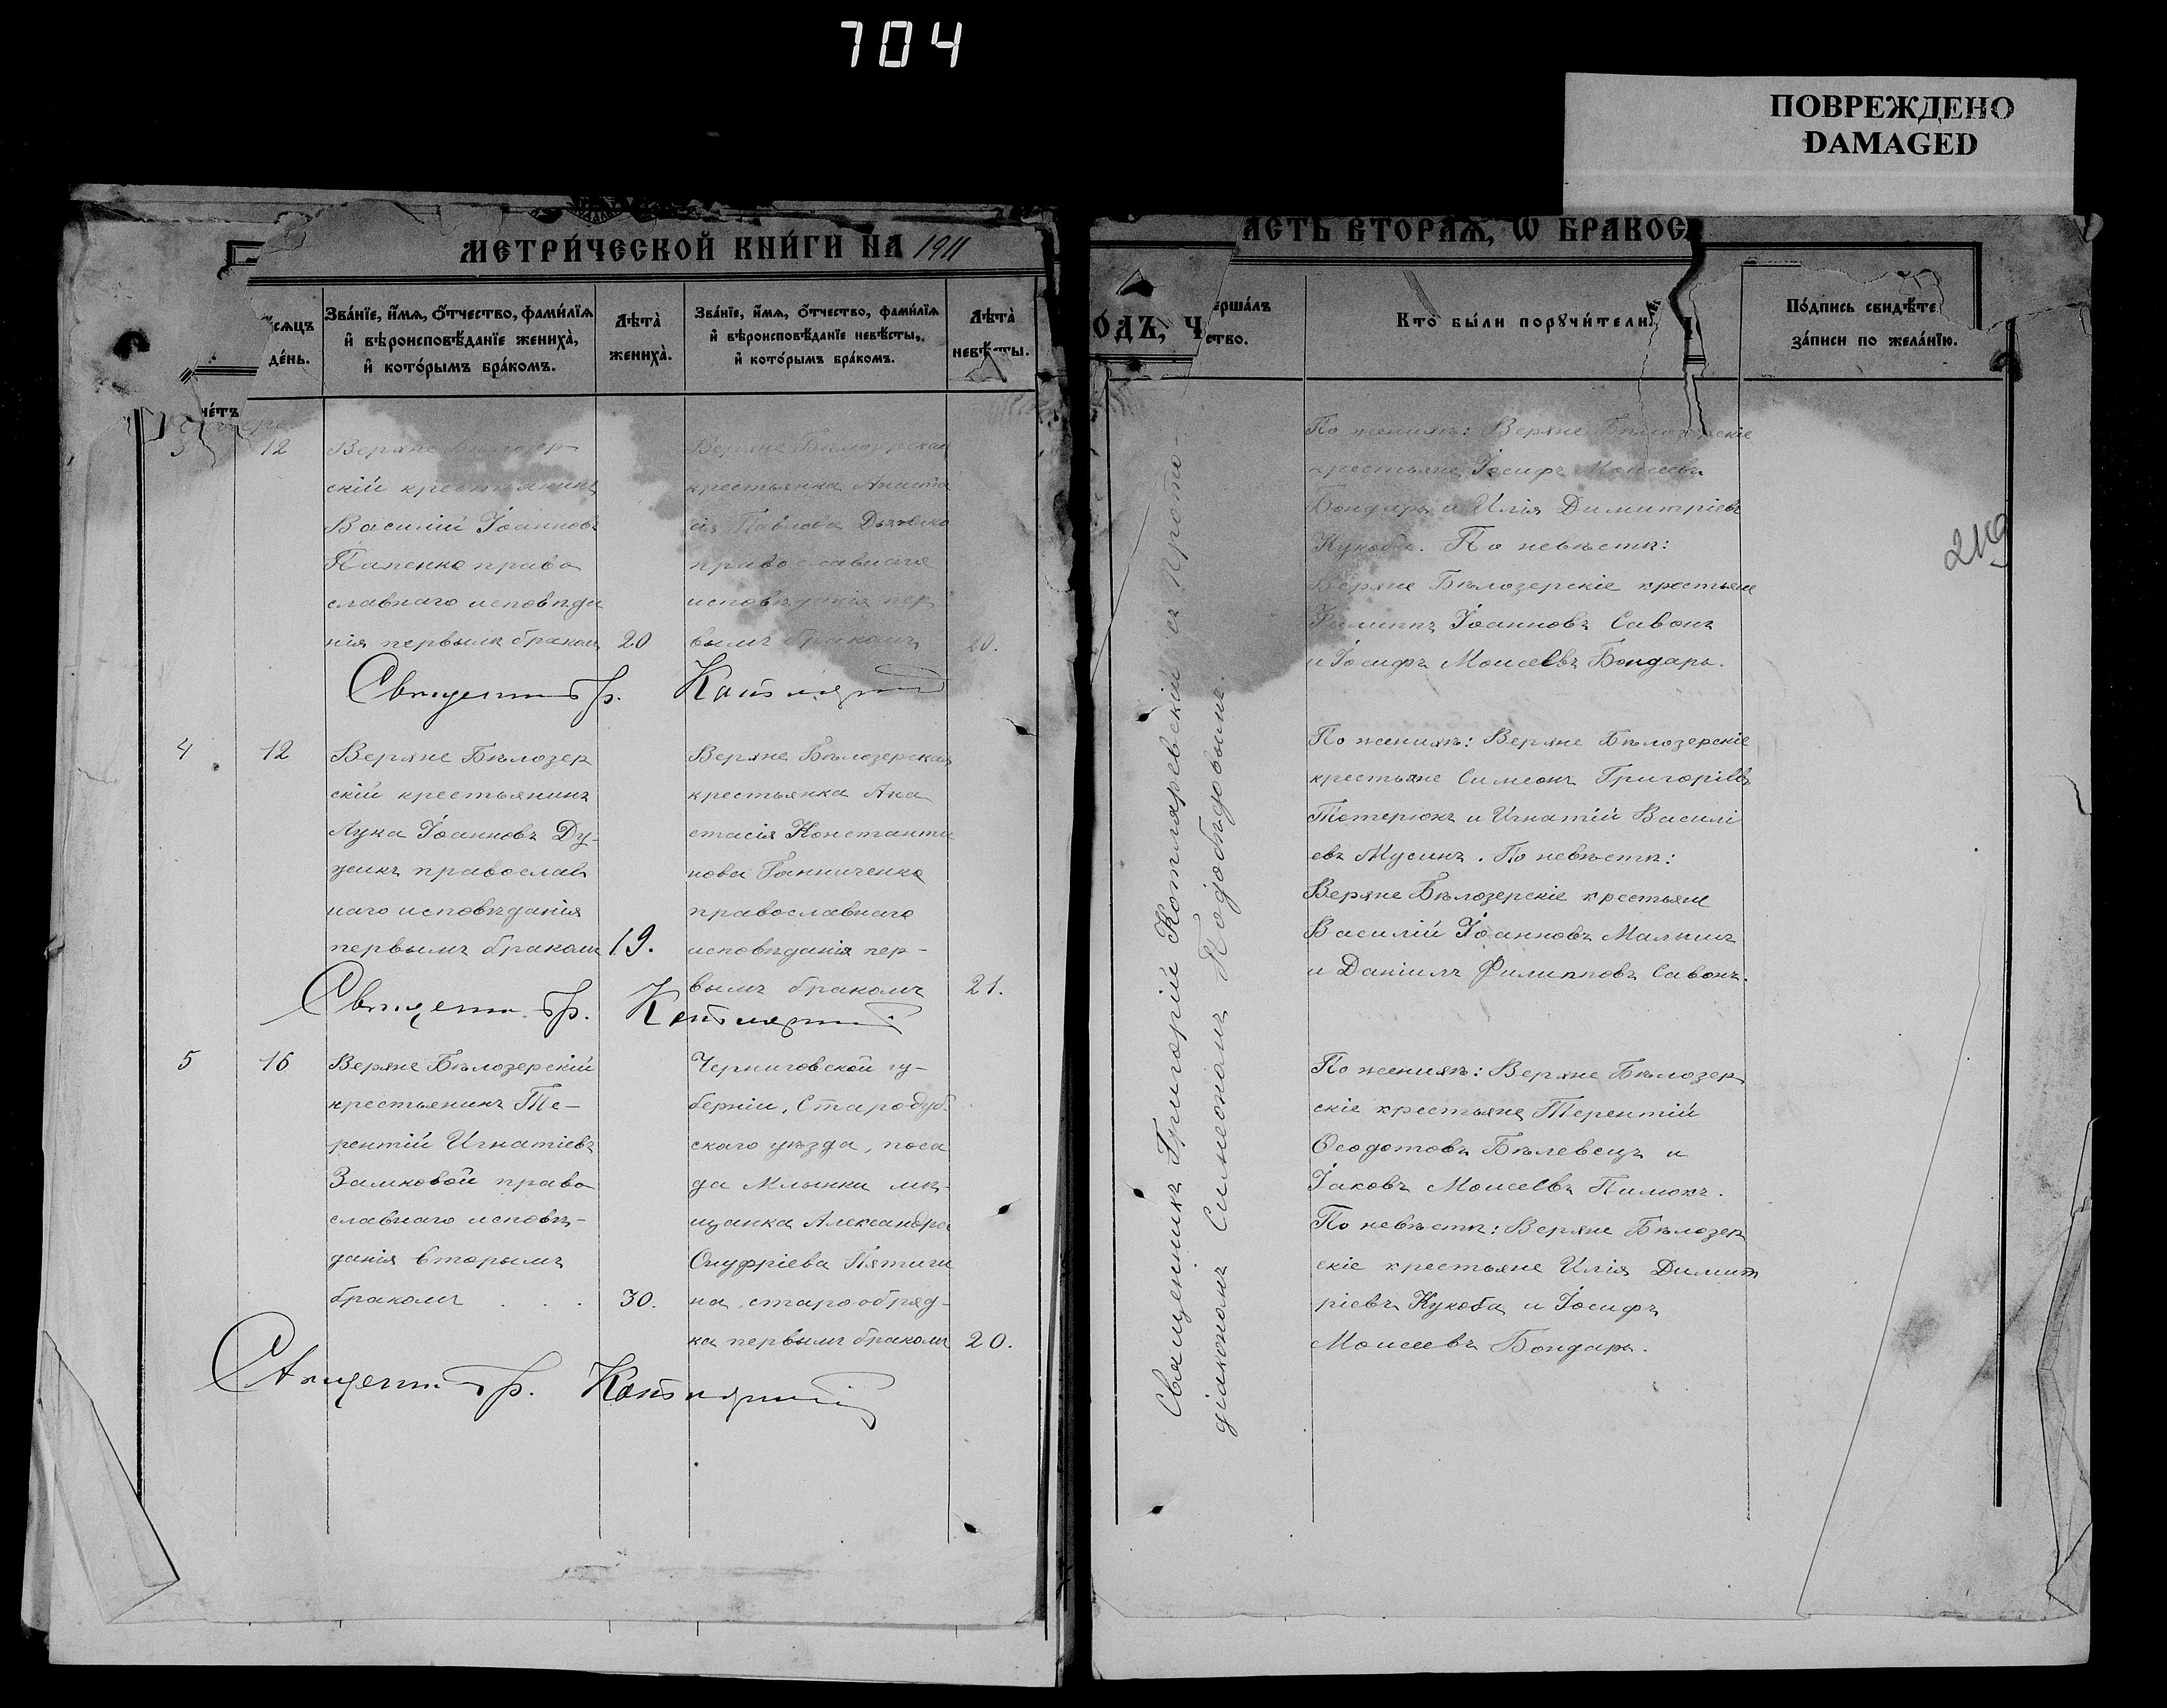 704
ПОВРЕЖДЕНО
DAMAGED
МЕТРИ́ЧЕСКОЙ КНИ́ГИ НА 1911
ѣсяцъ
де́нь.
Зва́нїе, и́мя, о́тчество, фами́лїя
и҆ вѣроисповѣ́данїе жениха̀,
и҆ кото́рымъ бра́комъ.
Лѣта̀
жениха̀.
Зва́нїе, и́мя, о́тчество, фами́лїя
и҆ вѣроисповѣ́данїе невѣ́сты,
и҆ кото́рымъ бра́комъ.
Лѣта̀
невѣ́сты.
че́тъ
3
12
Веряне Бѣлозер
скій крестьянинъ
Василій Іоанновъ
Папенко право
славнаго исповѣда
нія первымъ бракомъ
20
Веряне Бѣлозерская
крестьянка Анаста
сія Павлова Дьяченко
православнаго
исповѣданія пер
вымъ бракомъ
20.
Священникъ Гр. Котляревскій
4
12
Веряне Бѣлозер
скій крестьянинъ
Лука Іоанновъ Ду-
жикъ православ
наго исповѣданія
первымъ бракомъ
19.
Веряне Бѣлозерская
крестьянка Ана
стасія Константи
нова Ганниченко
православнаго
исповѣданія пер-
вымъ бракомъ
21.
Священ. Гр. Котляревскій
5
16
Веряне Бѣлозерскій
крестьянинъ Те-
рентій Игнатіевъ
Замковой право
славнаго исповѣ-
данія вторымъ
бракомъ . . .
30.
Черниговской гу-
берніи, Стародуб-
скаго уѣзда, поса
да Млынки мѣ-
щанка Александра
Онуфріева Пятиги
на, старообряд-
ка первымъ бракомъ
20.
Священ. Гр. Котляревскій
АСТЬ ВТОРАЯ, Ѡ БРАКОС
ОДЪ, Ч
ершáлъ
ство.
Кто бы́ли порꙋчи́тели
По́дпись свидѣ́те
за́писи по жела́нїю.
219
Священникъ Григорій Котляревскій съ Прото-
діакономъ Симеономъ Подобѣдовымъ.
По женихѣ: Веряне Бѣлозерскіе
крестьяне Іосифъ Моисеевъ
Бондарь и Илія Димитріевъ
Кукоба. По невѣстѣ:
Веряне Бѣлозерскіе крестьяне
Филиппъ Іоанновъ Савонъ
и Іосифъ Моисеевъ Бондарь.
По женихѣ: Веряне Бѣлозерскіе
крестьяне Симеонъ Григоріевъ
Тетерюкъ и Игнатій Василі
евъ Мусинъ. По невѣстѣ:
Веряне Бѣлозерскіе крестьяне
Василій Іоанновъ Малышъ
и Даніилъ Филипповъ Савонъ.
По женихѣ: Веряне Бѣлозер
скіе крестьяне Терентій
Ѳеодотовъ Бѣлевецъ и
Іаковъ Моисеевъ Пимокъ.
По невѣстѣ: Веряне Бѣлозер
скіе крестьяне Илія Димит
ріевъ Кукоба и Іосифъ
Моисеевъ Бондарь.